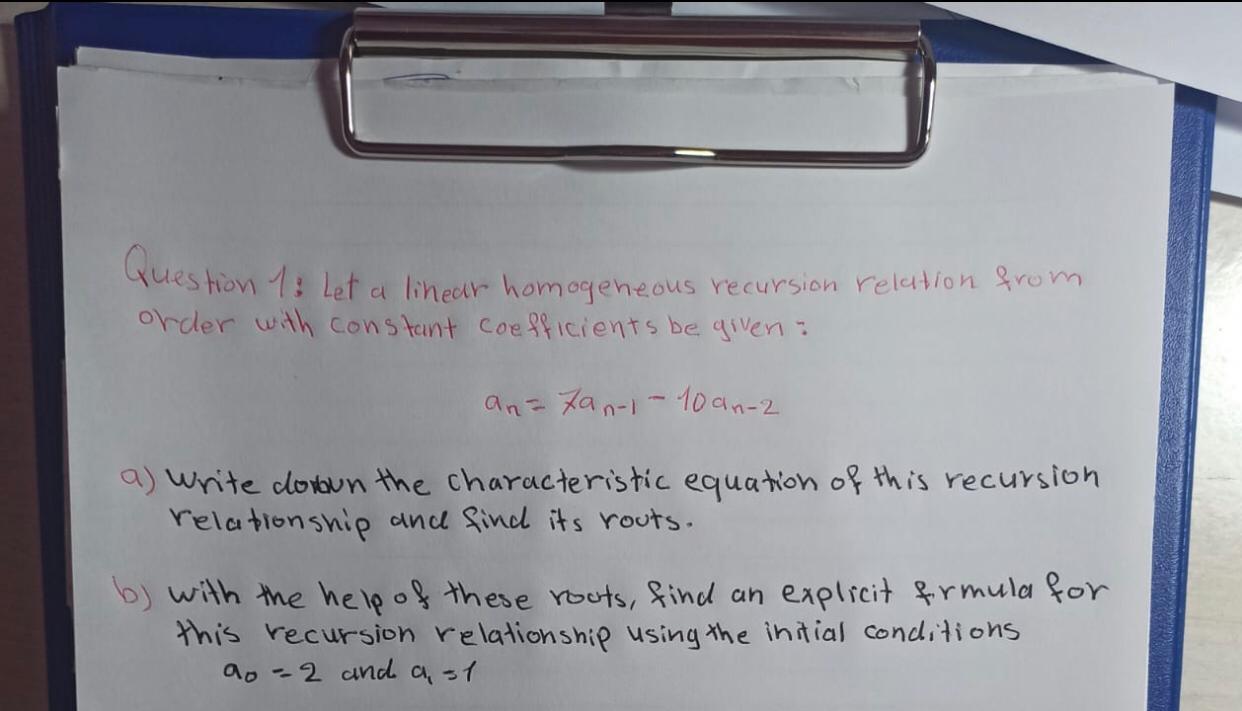 Question 1: Let a linear homogeneous recursion relation from
order with constant coefficients be given:
aₙ = 7aₙ₋₁ - 10aₙ₋₂
a) Write down the characteristic equation of this recursion
relationship and find its roots.
b) with the help of these roots, find an explicit frmula for
this recursion relationship using the initial conditions
a₀ = 2 and a₁ = 1